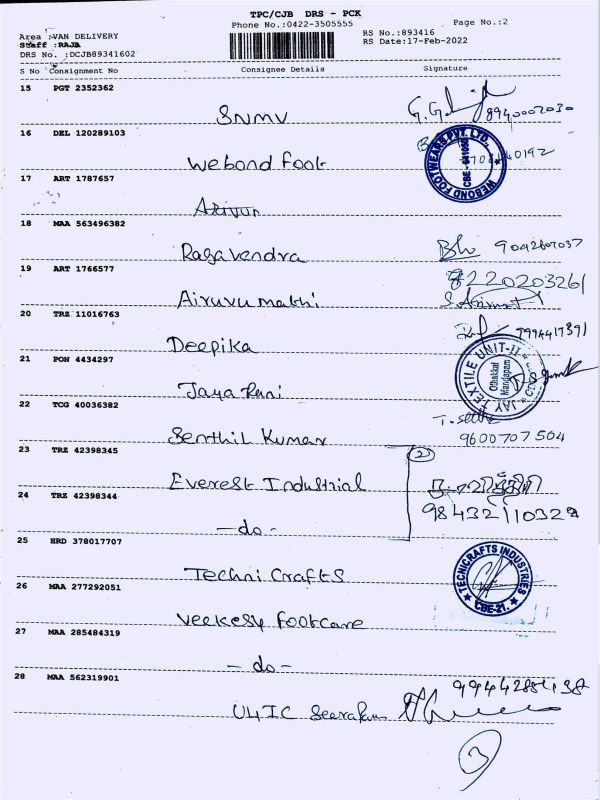 TPC/CJB DRS - PCK
Phone No.:0422-3505555
Page No.:2
Area :VAN DELIVERY
Staff :RAJA
DRS No. :DCJB89341602
RS No.:893416
RS Date:17-Feb-2022
S No Consignment No Consignee Details Signature
15 PGT 2352362
SNMV
8940002030
16 DEL 120289103
Webond Foot
WEBOND FOOTWEARS PVT. LTD.
17 ART 1787657
Arivur
18 MAA 563496382
Ragavendra
19 ART 1766577
8220203261
Airuvumathi
20 TRZ 11016763
Deepika
7994417391
21 PON 4434297
JAY TEXTILE UNIT-II
Othakkal
Mandapam
Jaya Rani
22 TCG 40036382
Senthil Kumar
9600707504
23 TRZ 42398345
2
Everest Industrial
24 TRZ 42398344
-do-
25 HRD 378017707
Techni Crafts
TECNICRAFTS INDUSTRIES
CBE-21.
26 MAA 277292051
Veekesy Footcare
27 MAA 285484319
-do-
28 MAA 562319901
U4IC
3